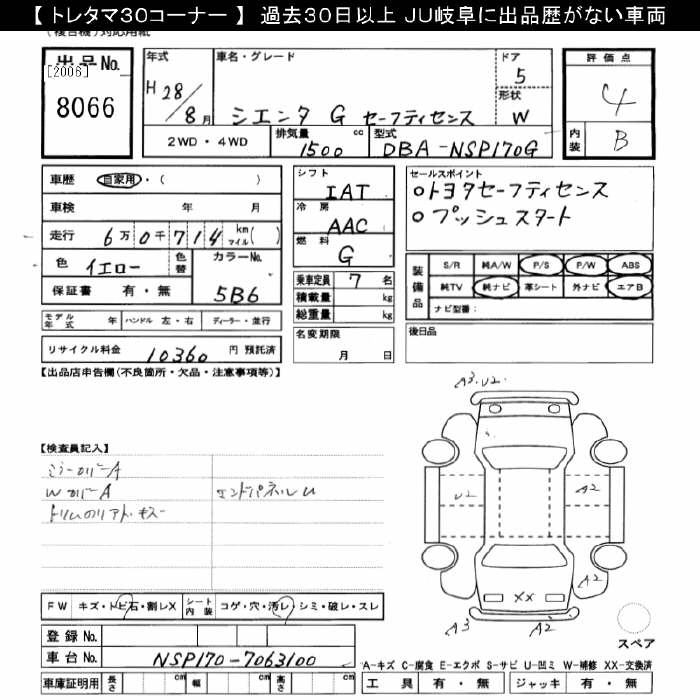 【 トレタマ30コーナー 】 過去30日以上 JU岐阜に出品歴がない車両
(複合機)対応用紙
出品No.
[2006]
8066
年式
H 28/8月
車名・グレード
シエンタ G セーフティセンス
ドア
5
形状
W
評価点
4
内装
B
2WD・4WD
排気量
1500 cc
型式
DBA-NSP170G
車歴 自家用・( )
車検 年 月
走行 6万0千714 km マイル( )
色 イエロー 色替
カラーNo.
5B6
保証書 有・無
シフト
IAT
冷房
AAC
燃料
G
セールスポイント
○トヨタセーフティセンス
○プッシュスタート
乗車定員 7 名
積載量 kg
総重量 kg
装備品
S/R 純A/W P/S P/W ABS
純TV 純ナビ 革シート 外ナビ エアB
ナビ型番:
モデル年式 年 ハンドル 左・右 ディーラー・並行
名変期限
月 日
後日品
リサイクル料金 10360 円 預託済
【出品店申告欄(不良箇所・欠品・注意事項等)】
A3.U2.
【検査員記入】
ミラーカバーA
WカバーA
エンドパネルU
U2
A2
A2
XX
A3
A2
FW キズ・トビ石・割レX
シート内装 コゲ・穴・汚レ・シミ・破レ・スレ
登録No.
車台No. NSP170-7063100
スペア
A-キズ C-腐食 E-エクボ S-サビ U-凹ミ W-補修 XX-交換済
車庫証明用 長さ cm 幅 cm 高さ cm
工具 有・無 ジャッキ 有・無